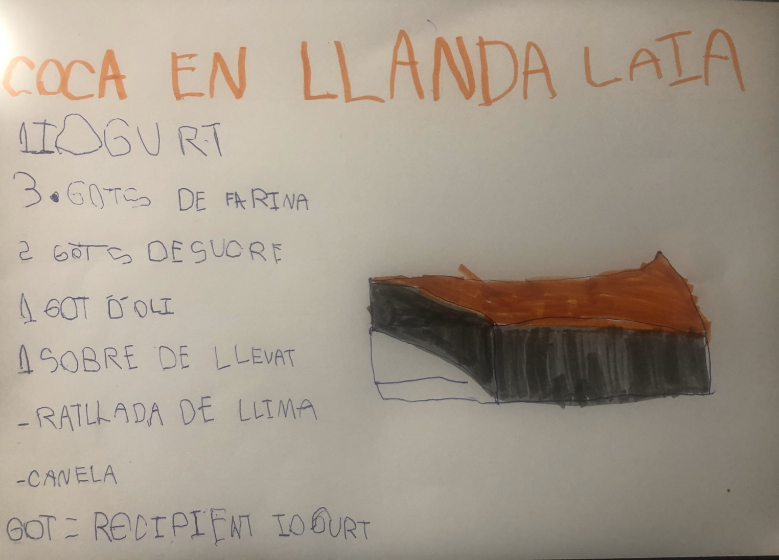 COCA EN LLANDA LAIA
1 IOGURT
3. GOTS DE FARINA
2 GOTS DE SUCRE
1 GOT D'OLI
1 SOBRE DE LLEVAT
- RATLLADA DE LLIMA
- CANELA
GOT = RECIPIENT IOGURT